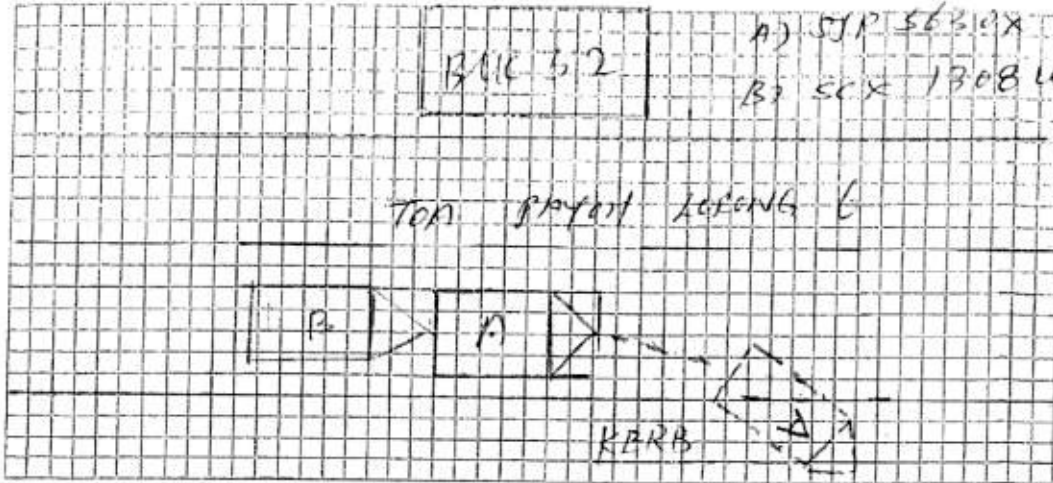 BLK 52
A) SJP 5630X
B) SCX 1308U
TOA PAYOH LORONG 6
B
A
A
KERB